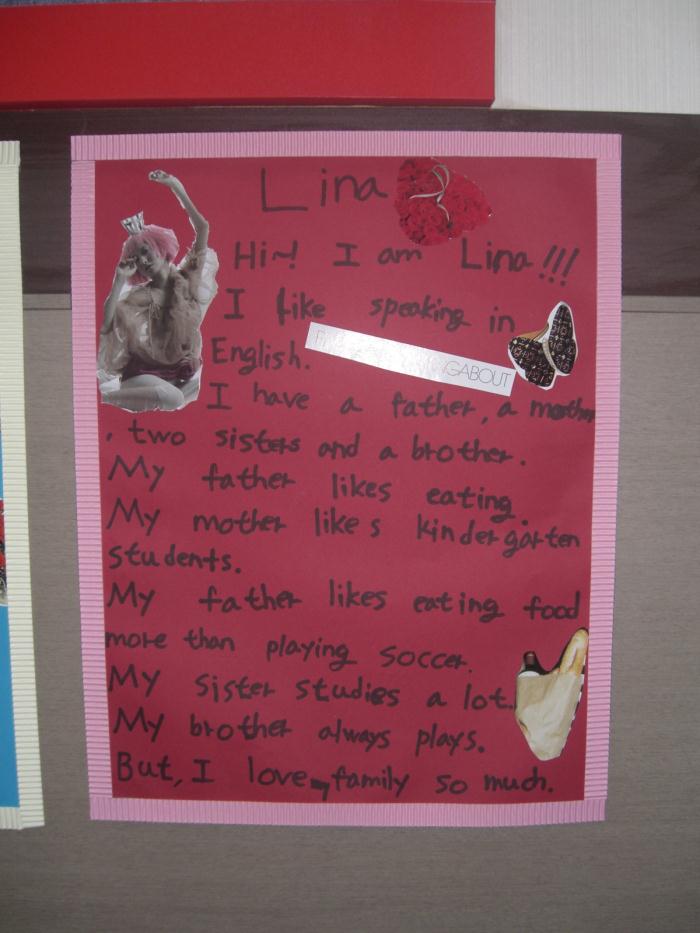 Lina
Hi~! I am Lina!!!
I like speaking in
English.
GABOUT
I have a father, a mother
, two sisters and a brother.
My father likes eating.
My mother likes kindergarten
students.
My father likes eating food
more than playing soccer.
My sister studies a lot.
My brother always plays.
But, I love family so much.